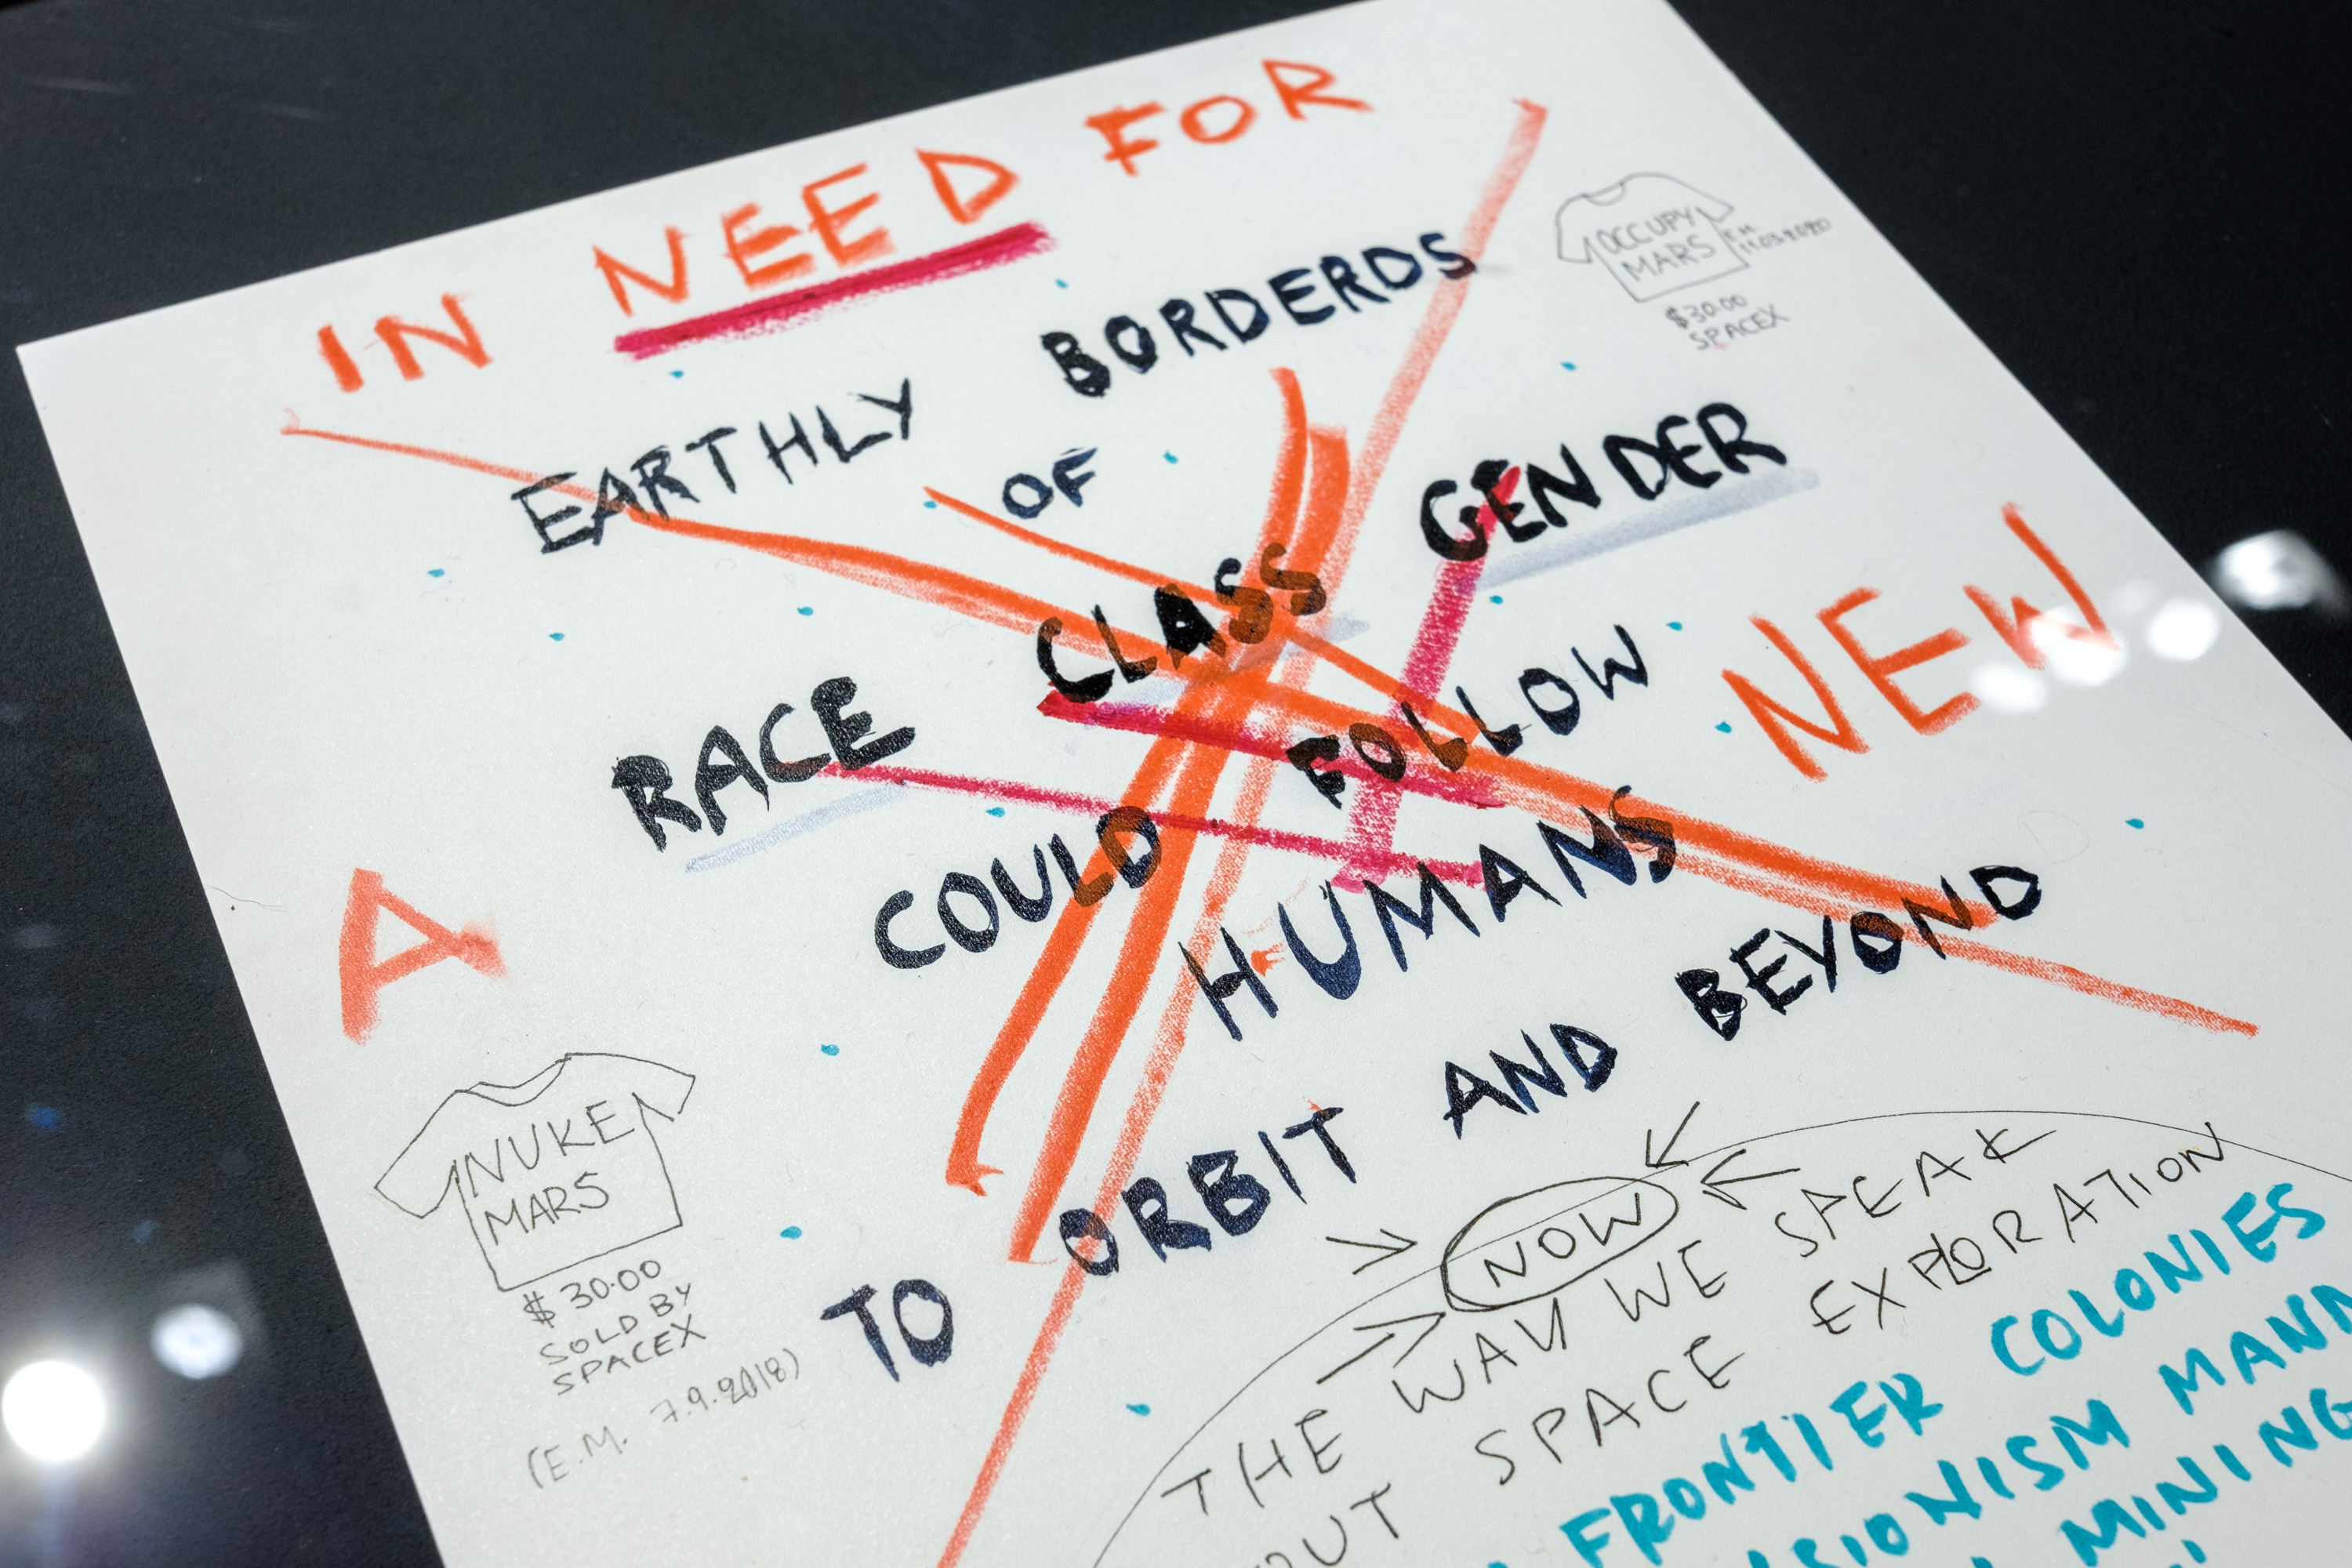 IN NEED FOR
EARTHLY BORDERDS
OCCUPY
MARS
$30.00
SPACEX
OF
RACE CLASS GENDER
A NEW
COULD FOLLOW
HUMANS
TO ORBIT AND BEYOND
NUKE
MARS
$30.00
SOLD BY
SPACEX
(E.M. 7.9.2018)
NOW
THE WAY WE SPEAK
OUT SPACE EXPLORATION
FRONTIER COLONIES
MINING